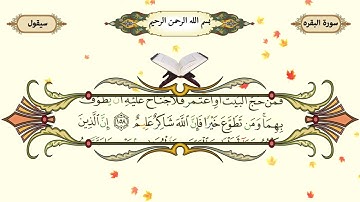 سورة البقره
بسم الله الرحمن الرحيم
سيقول
فَمَنْ حَجَّ الْبَيْتَ أَوِ اعْتَمَرَ فَلَا جُنَاحَ عَلَيْهِ أَنْ يَطَّوَّفَ
بِهِمَا وَمَنْ تَطَوَّعَ خَيْرًا فَإِنَّ اللَّهَ شَاكِرٌ عَلِيمٌ ١٥٨ إِنَّ الَّذِينَ